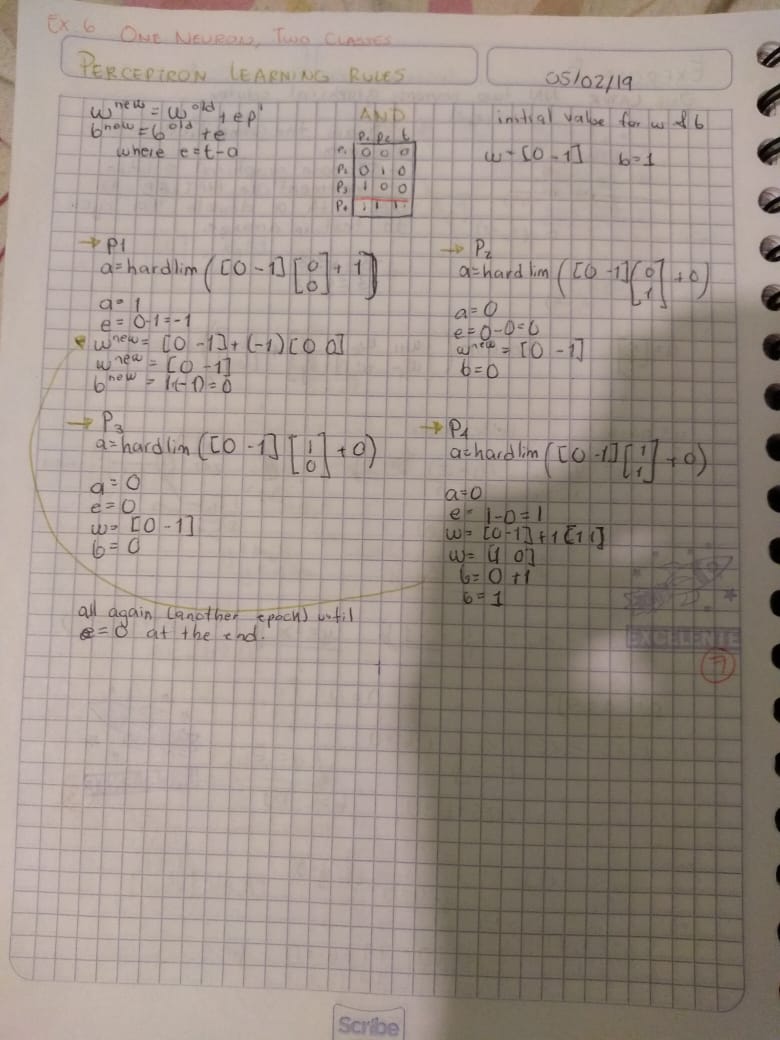 Ex. 6 ONE NEURON, TWO CLASSES
PERCEPTRON LEARNING RULES
05/02/19
w^new = w^old + ep'
b^new = b^old + e
where e = t - a
AND
P1 P2 t
P1 0 0 0
P2 0 1 0
P3 1 0 0
P4 1 1 1
initial value for w & b
w = [0 -1] b = 1
→ P1
a = hardlim ([0 -1][0 0] + 1)
a = 1
e = 0-1 = -1
w^new = [0 -1] + (-1)[0 0]
w^new = [0 -1]
b^new = 1(-1) = 0
→ P2
a = hardlim ([0 -1][0 1] + 0)
a = 0
e = 0-0 = 0
w^new = [0 -1]
b = 0
→ P3
a = hardlim ([0 -1][1 0] + 0)
a = 0
e = 0
w = [0 -1]
b = 0
→ P4
a = hardlim ([0 -1][1 1] + 0)
a = 0
e = 1-0 = 1
w = [0 -1] + 1[1 1]
w = [1 0]
b = 0 + 1
b = 1
all again (another epoch) until
e = 0 at the end.
EXCELENTE
7
Scribe